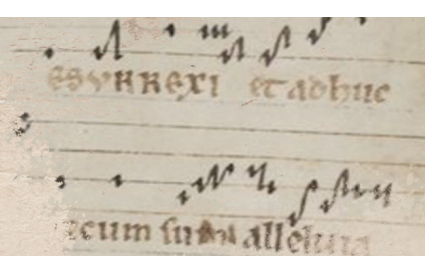 esurrexi et adhuc
ecum sum alleluia